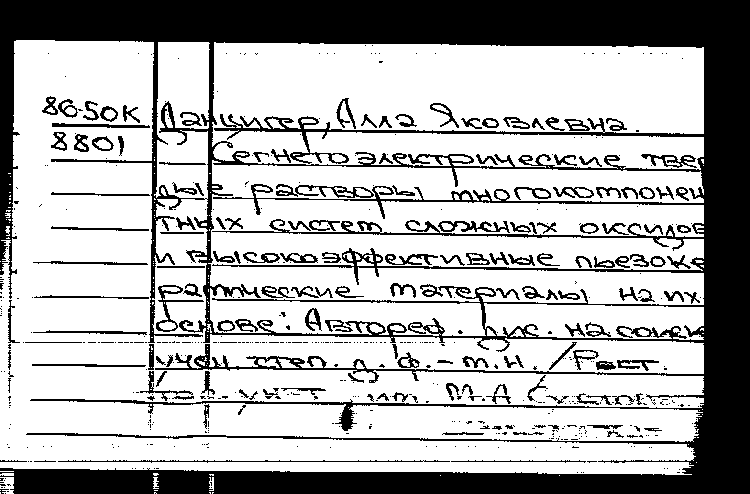 86-50К Данцигер, Алла Яковлевна.
8801 Сегнетоэлектрические твер
дые растворы многокомпонен
тных систем сложных оксидов
и высокоэффективные пьезоке
рамические материалы на их
основе: Автореф. дис. на соиск
учен. степ. д. ф.-м.н. / Рост.
гос. ун-т им. М.А Суслова